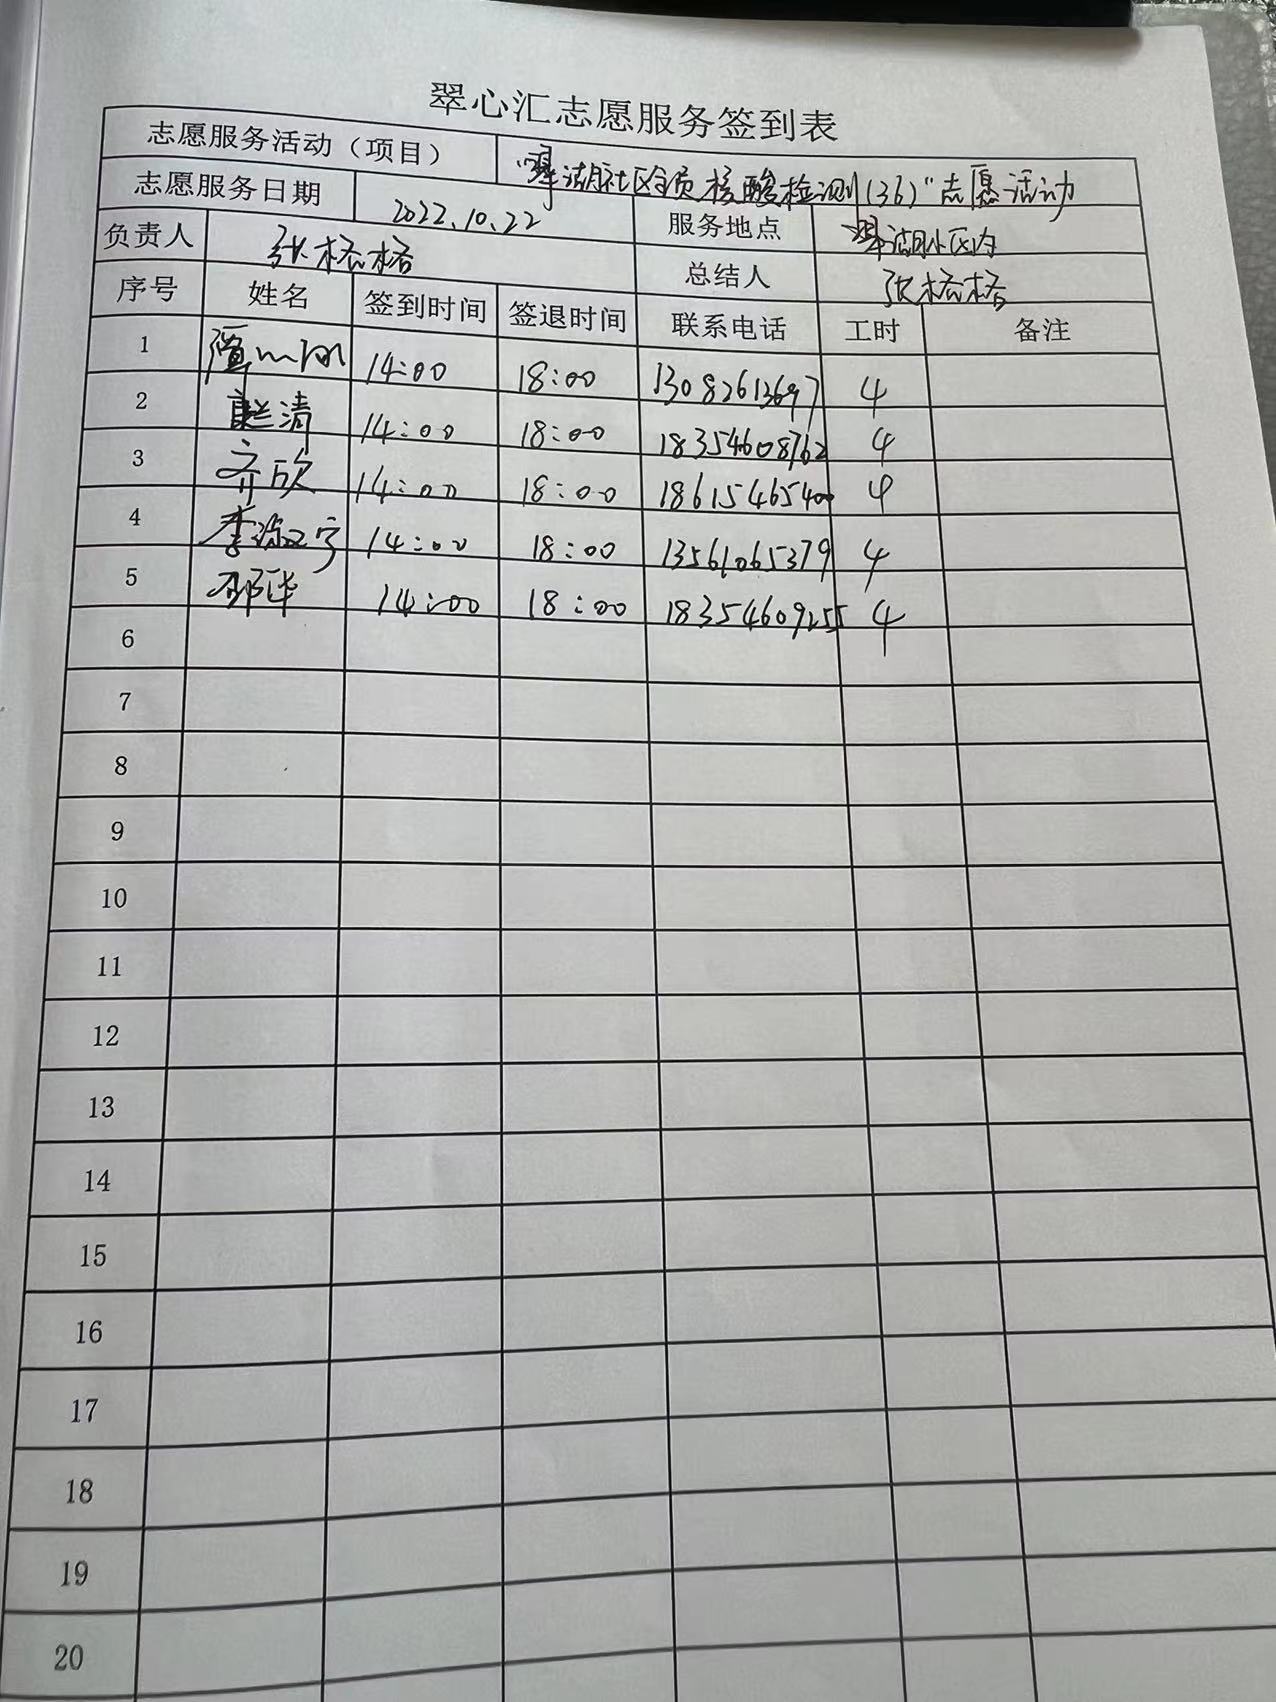 翠心汇志愿服务签到表
志愿服务活动（项目） "翠湖社区全员核酸检测(36)"志愿活动
志愿服务日期 2022.10.22 服务地点 翠湖小区内
负责人 张格格 总结人 张格格
序号 姓名 签到时间 签退时间 联系电话 工时 备注
1 14:00 18:00 13082613697 4
2 赵清 14:00 18:00 18354608762 4
3 齐欣 14:00 18:00 18615465400 4
4 李 14:00 18:00 13561065379 4
5 邵华 14:00 18:00 18354609255 4
6
7
8
9
10
11
12
13
14
15
16
17
18
19
20